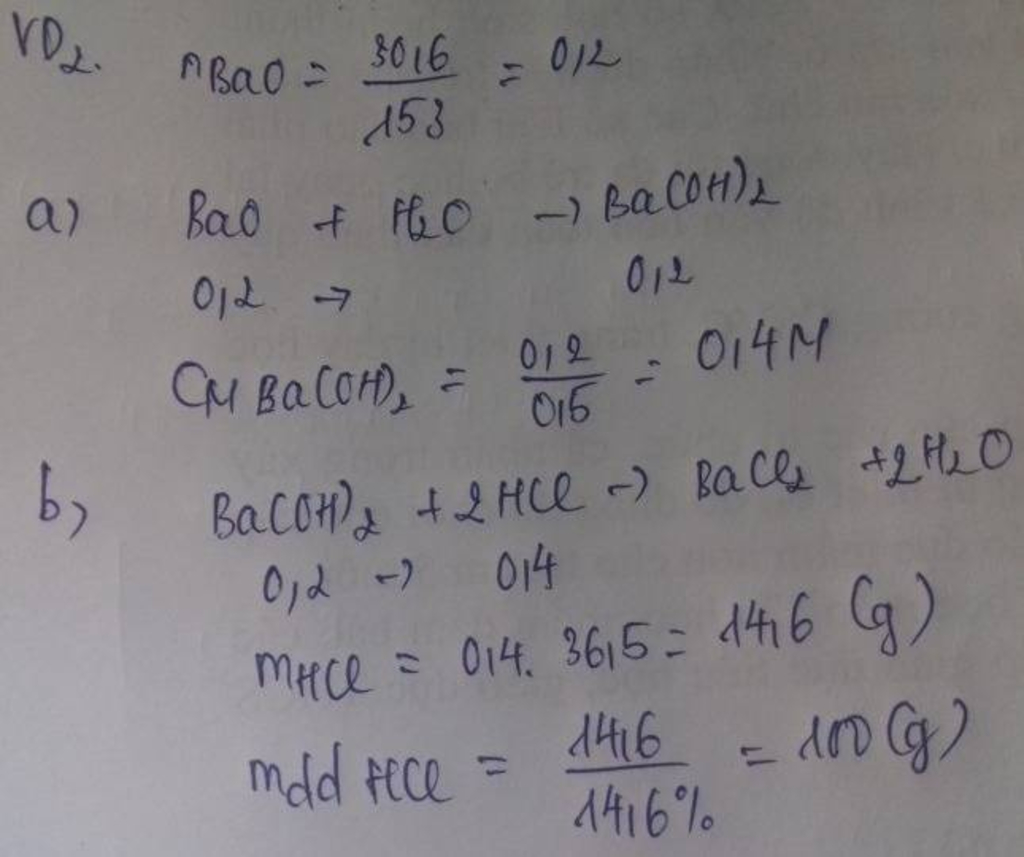 VD2. nBaO = 30,6/153 = 0,2
a) BaO + H2O → Ba(OH)2
0,2 → 0,2
CM Ba(OH)2 = 0,2/0,5 = 0,4M
b) Ba(OH)2 + 2HCl → BaCl2 + 2H2O
0,2 → 0,4
mHCl = 0,4. 36,5 = 14,6 (g)
mdd HCl = 14,6/14,6% = 100 (g)